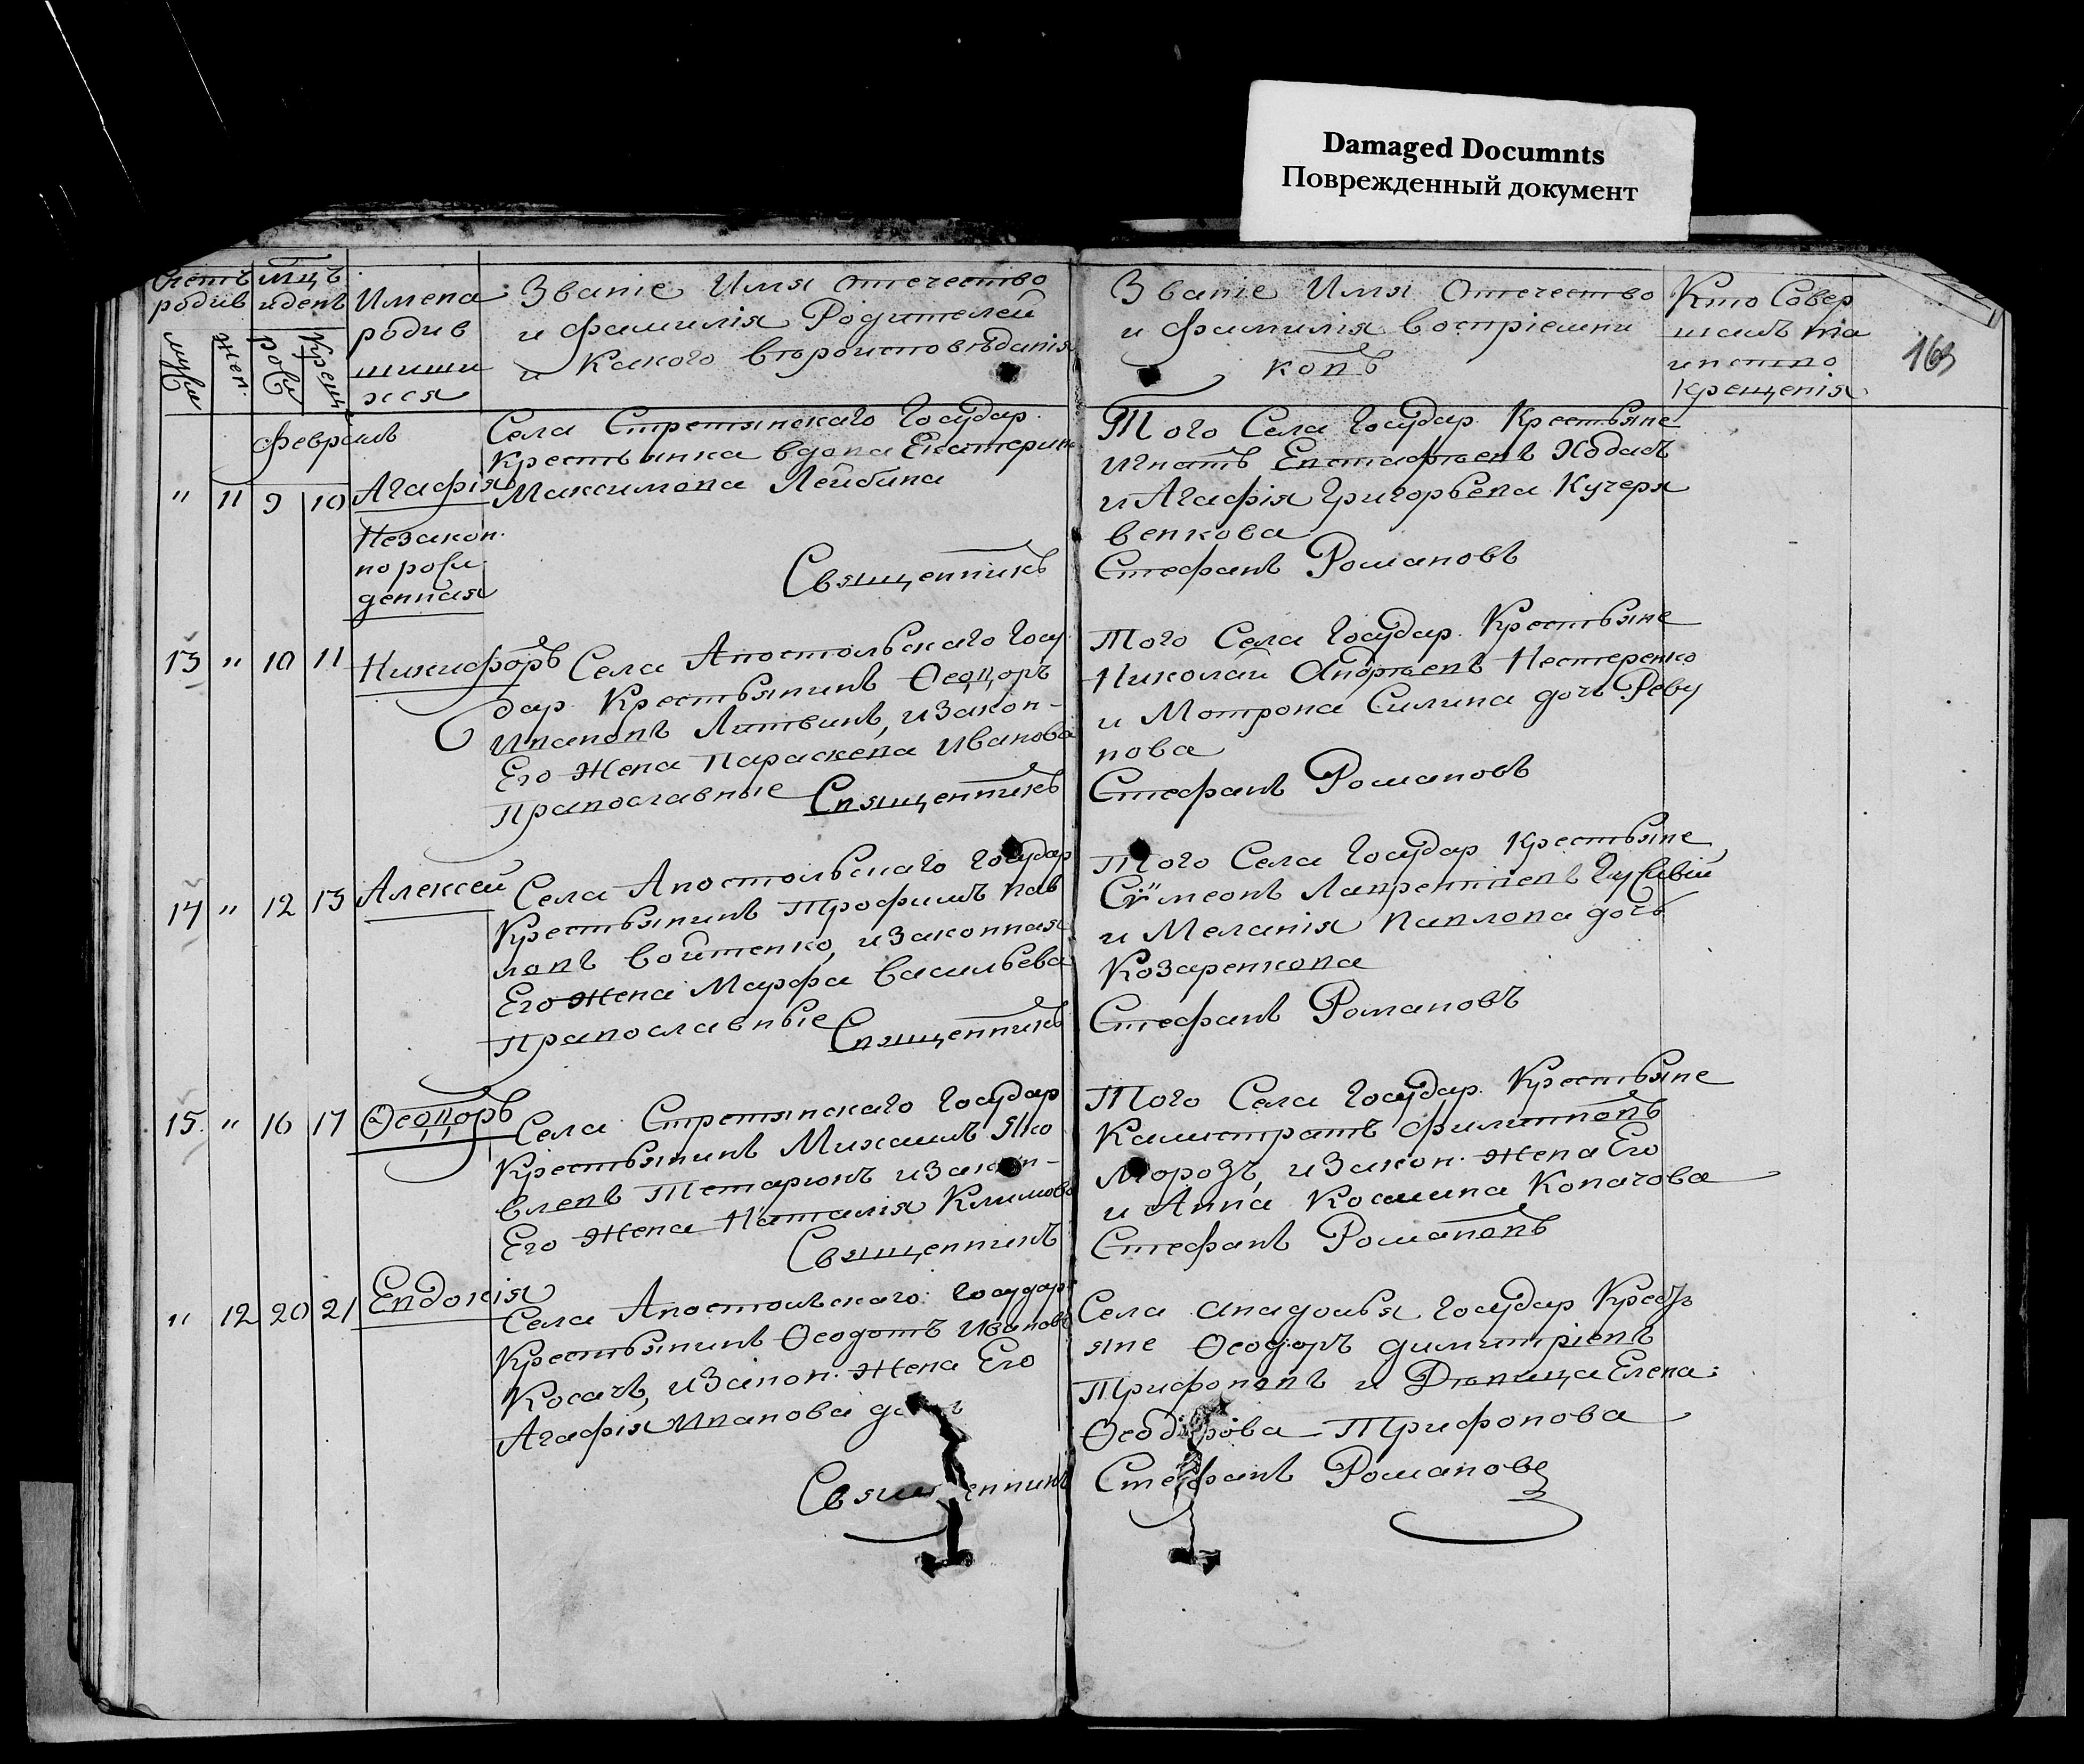 Damaged Documnts
Поврежденный документ
Счетъ родив
муж
жен.
мцъ и день
рож
Крещ
Имена
родив
шихи
хся
Званіе Имя Отечество
и фамилія Родителей
и Какого вѣроисповѣданія
Званіе Имя Отечество
и фамилія воспріемни
ковъ
Кто Совер
шалъ та
инство
крещенія
163
Февраль
" 11 9 10
Агафія
Незакон.
норож
денная
Села Стретинскаго Государ.
Крестьянка вдова Екатерина
Максимова Лейбина
Священникъ
Того Села Государ Крестьяне
Игнатъ Евстафьевъ Ходасъ
и Агафія Григорьева Кучеря
венкова
Стефанъ Романовъ
13 " 10 11
Никифоръ
Села Апостольскаго Госу
дар. Крестьянинъ Ѳеодоръ
Ивановъ Литвинъ, и Закон-
Его Жена Параскева Иванова
Православные Священникъ
Того Села Государ. Крестьяне
Николай Андреевъ Нестеренко
и Мотрона Силина дочь Реву
нова
Стефанъ Романовъ
14 " 12 13
Алексей
Села Апостольскаго Государ
Крестьянинъ Трофимъ Пав
ловъ Войтенко, и Законная
Его Жена Марфа Васильева
Православные Священникъ
Того Села Государ Крестьяне
Сѵмеонъ Лаврентіевъ
и Меланія Павлова дочь
Козаренкова
Стефанъ Романовъ
15. " 16 17
Ѳеодоръ
Села Стретинскаго Государ
Крестьянинъ Михаилъ Яко
влевъ Тетарюкъ и Закон-
Его Жена Наталія Климова
Священникъ
Того Села Государ. Крестьяне
Калистратъ Филиповъ
Морозъ, и Закон. Жена Его
и Анна Космина Копачова
Стефанъ Романовъ
" 12 20 21
Евдокія
Села Апостольскаго Государ
Крестьянинъ Ѳеодотъ Ивановъ
Косачъ, и Закон. Жена Его
Агафія Иванова дочь
Священникъ
Села Государ Крест
яне Ѳеодоръ Димитріевъ
Трифоновъ и Дѣвица Елена
Ѳеодорова Трифонова
Стефанъ Романовъ